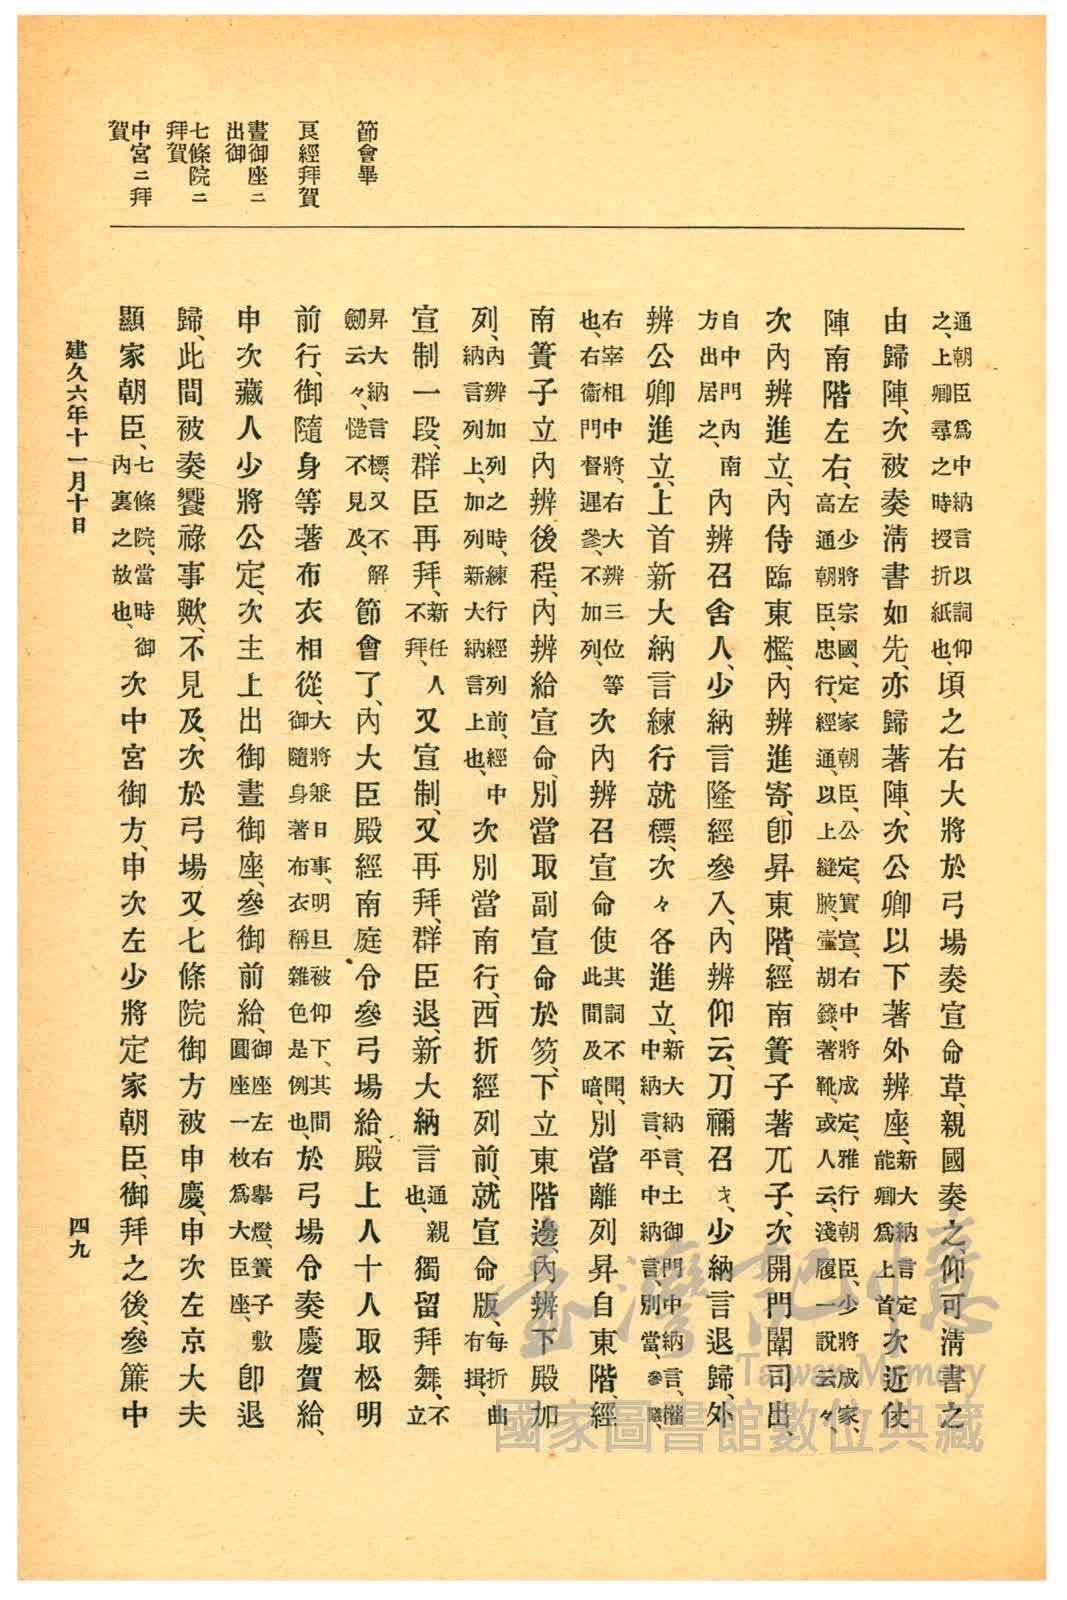 節會畢
良經拜賀
晝御座ニ
出御
七條院ニ
拜賀
中宮ニ拜
賀
通朝臣爲中納言以詞仰
之、上卿尋之時授折紙也、頃之右大將於弓場奏宣命草、親國奏之、仰可淸書之
由歸陣、次被奏淸書如先、亦歸著陣、次公卿以下著外辨座、新大納言定能卿爲上首、次近仗
陣南階左右、左少將宗國、定家朝臣、公定、實宣、右中將成定、雅行朝臣、少將成家、
高通朝臣、忠行、經通、以上縫腋、壷胡籙、著靴、或人云、淺履一說云々、
次內辨進立、內侍臨東檻、內辨進寄、卽昇東階、經南簀子著兀子、次開門闈司出、
自中門內南
方出居之、內辨召舍人、少納言隆經參入、內辨仰云、刀禰召才、少納言退歸、外
辨公卿進立、上首新大納言練行就標、次々各進立、新大納言、土御門中納言、權
中納言、平中納言、別當、參議、
右宰相中將、右大辨三位等
也、右衞門督遲參、不加列、次內辨召宣命使其詞不聞、
此間及暗、別當離列昇自東階、經
南簀子立內辨後程、內辨給宣命、別當取副宣命於笏、下立東階邊、內辨下殿加
列、內辨加列之時、練行經列前、經中
納言列上、加列新大納言上也、次別當南行、西折經列前、就宣命版、每折曲
有揖、
宣制一段、群臣再拜、新任人
不拜、又宣制、又再拜、群臣退、新大納言通親
也、獨留拜舞、不
立
昇大納言標、又不解
劒云々、慥不見及、節會了、內大臣殿經南庭令參弓場給、殿上人十人取松明
前行、御隨身等著布衣相從、大將兼日事、明旦被仰下、其間
御隨身著布衣稱雜色是例也、於弓場令奏慶賀給、
申次藏人少將公定、次主上出御晝御座、參御前給、御座左右擧燈、簀子敷
圓座一枚爲大臣座、卽退
歸、此間被奏饗祿事歟、不見及、次於弓場又七條院御方被申慶、申次左京大夫
顯家朝臣、七條院、當時御
內裏之故也、次中宮御方、申次左少將定家朝臣、御拜之後、參簾中
建久六年十一月十日
四九
臺灣記憶
Taiwan Memory
國家圖書館數位典藏